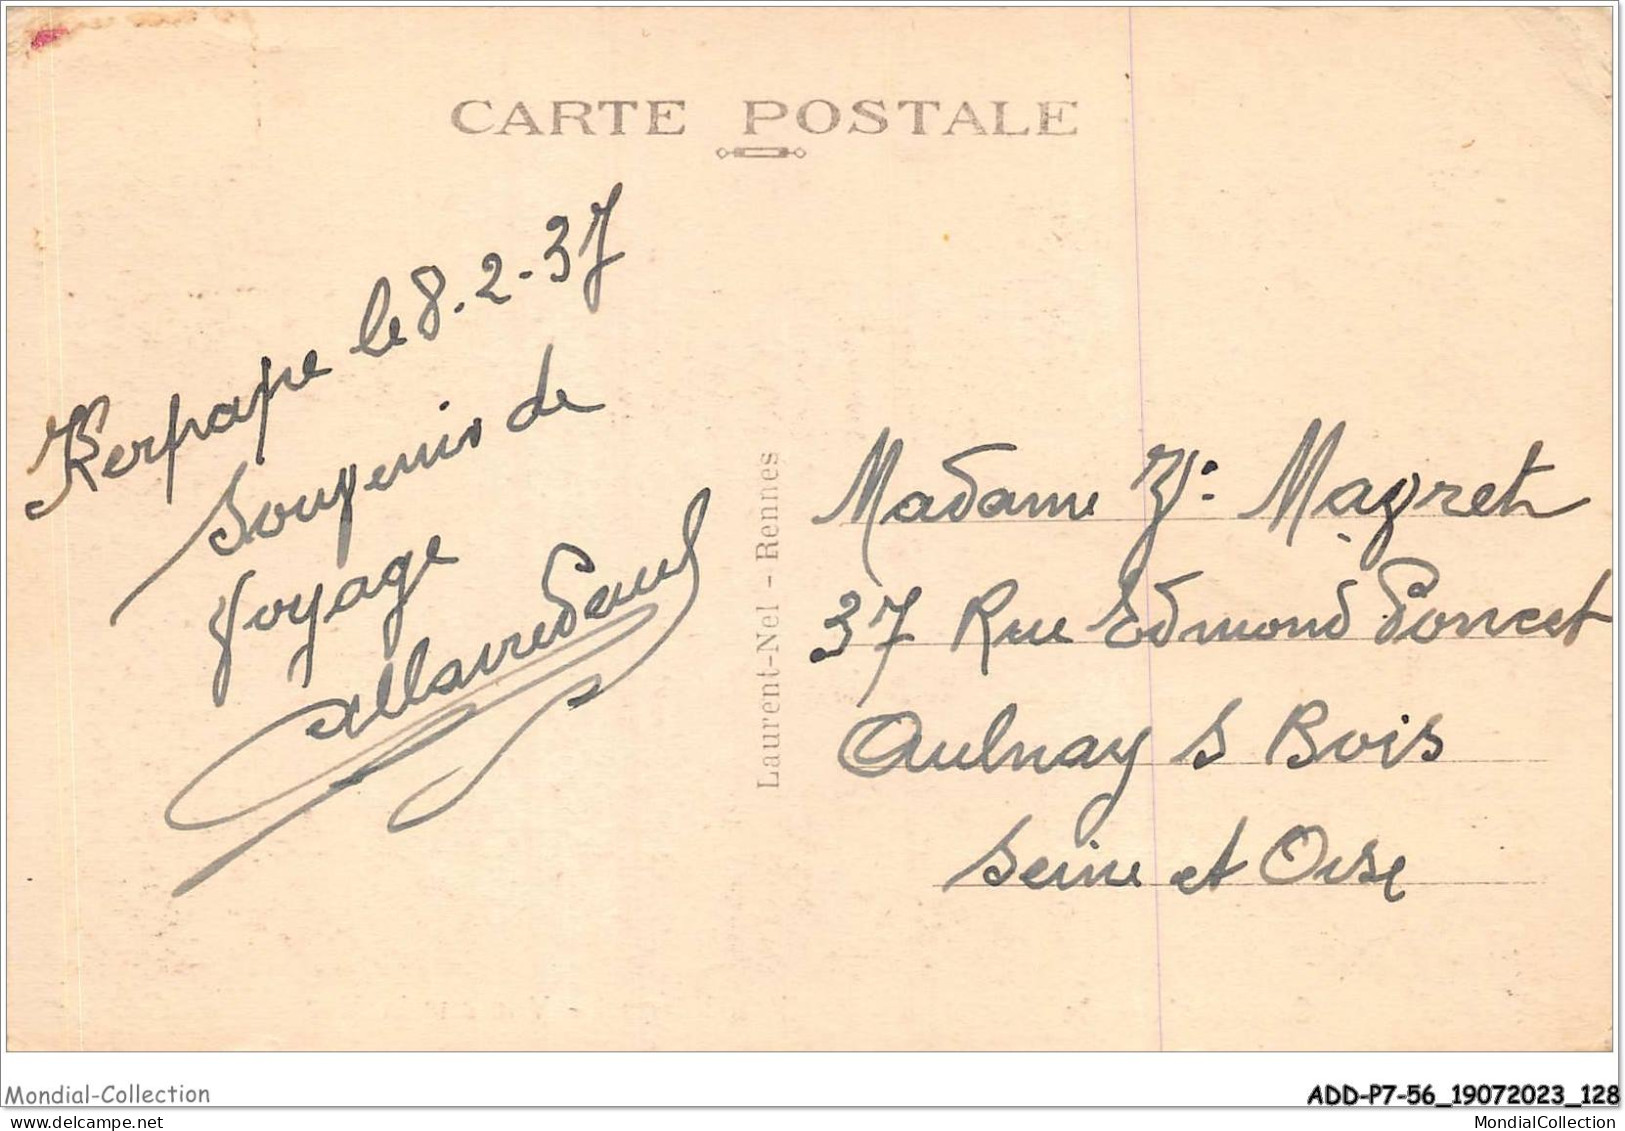 CARTE POSTALE
Kerpape le 8.2-37
Souvenir de
Voyage
Allaire Paul
Laurent-Nel - Rennes
Madame Vve Magret
37 Rue Edmond Poncet
Aulnay s Bois
Seine et Oise
Mondial-Collection
ADD-P7-56_19072023_128
delcampe.net
MondialCollection